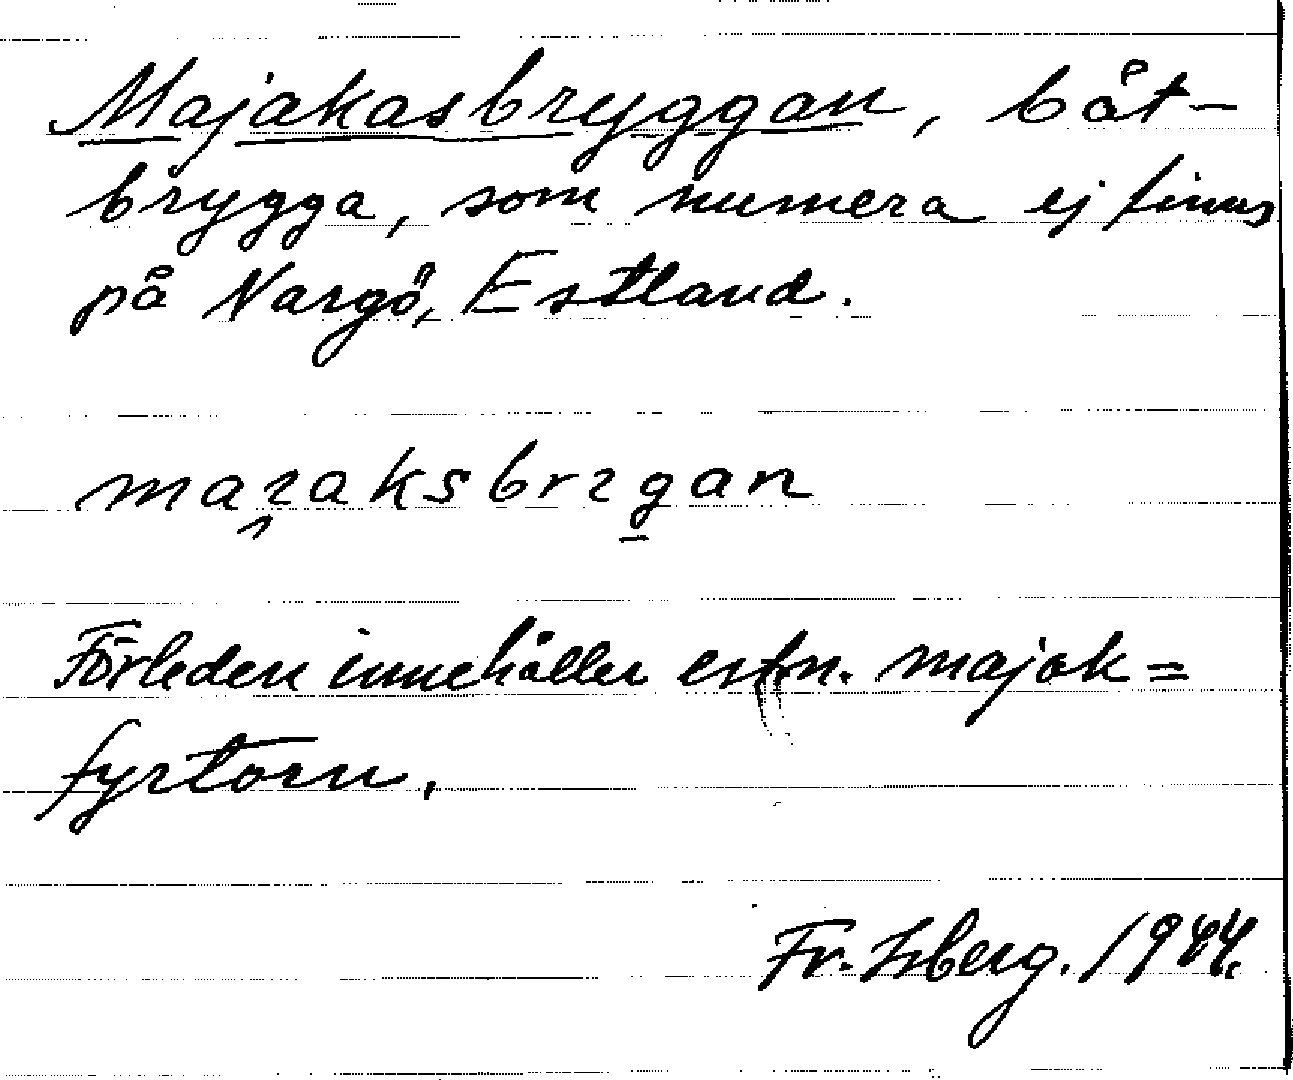 Majakasbryggan, båt-
brygga, som numera ej finns
på Nargö, Estland.
maɪ̯aksbrɪg̱an
Förleden innehåller estn. majak =
fyrtorn.
Fr. Isberg. 1944.